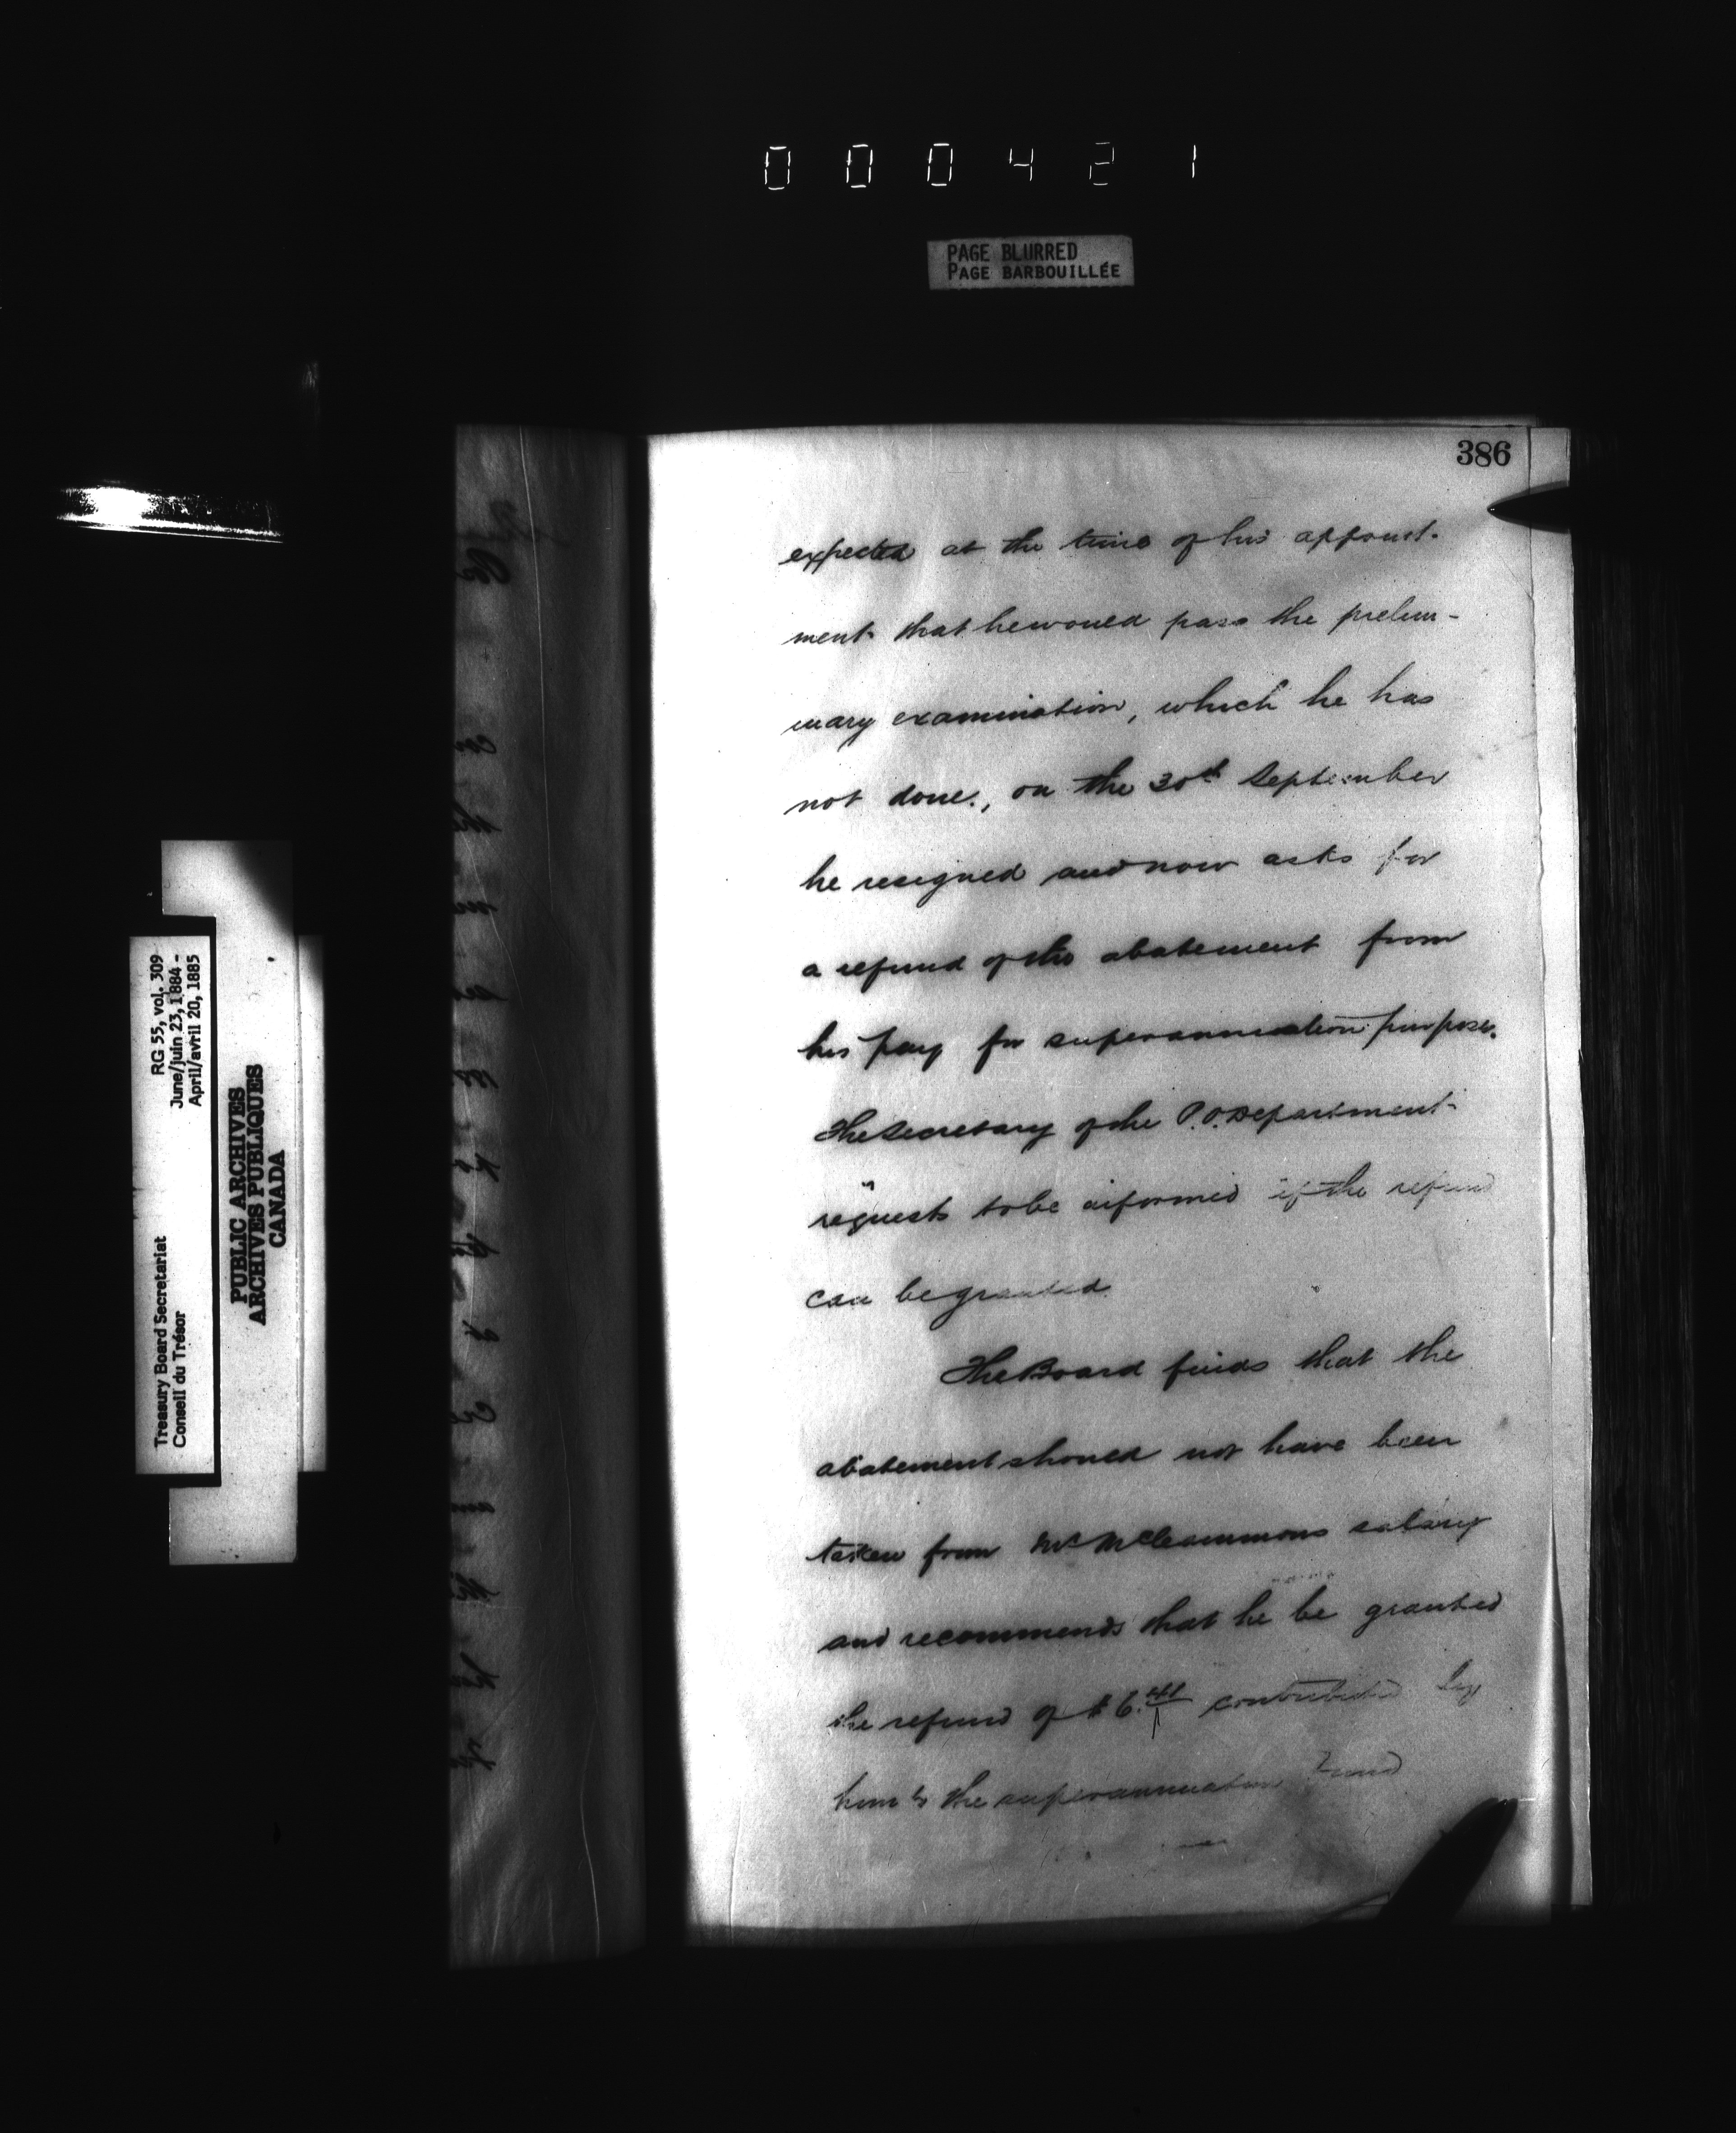 000421
PAGE BLURRED
PAGE BARBOUILLÉE
386
expected at the time of his appoint-
ment that he would pass the prelim-
inary examination, which he has
not done, on the 30th September
he resigned and now asks for
a refund of the abatement from
his pay for superannuation purposes.
The Secretary of the P.O. Department
requests to be informed if the refund
can be granted.
The Board finds that the
abatement should not have been
taken from Mr McCleammons salary
and recommends that he be granted
the refund of $6.41 contributed by
him to the superannuation Fund
RG 55, vol. 309
June/juin 23, 1884 -
April/avril 20, 1885
Treasury Board Secretariat
Conseil du Trésor
PUBLIC ARCHIVES
ARCHIVES PUBLIQUES
CANADA